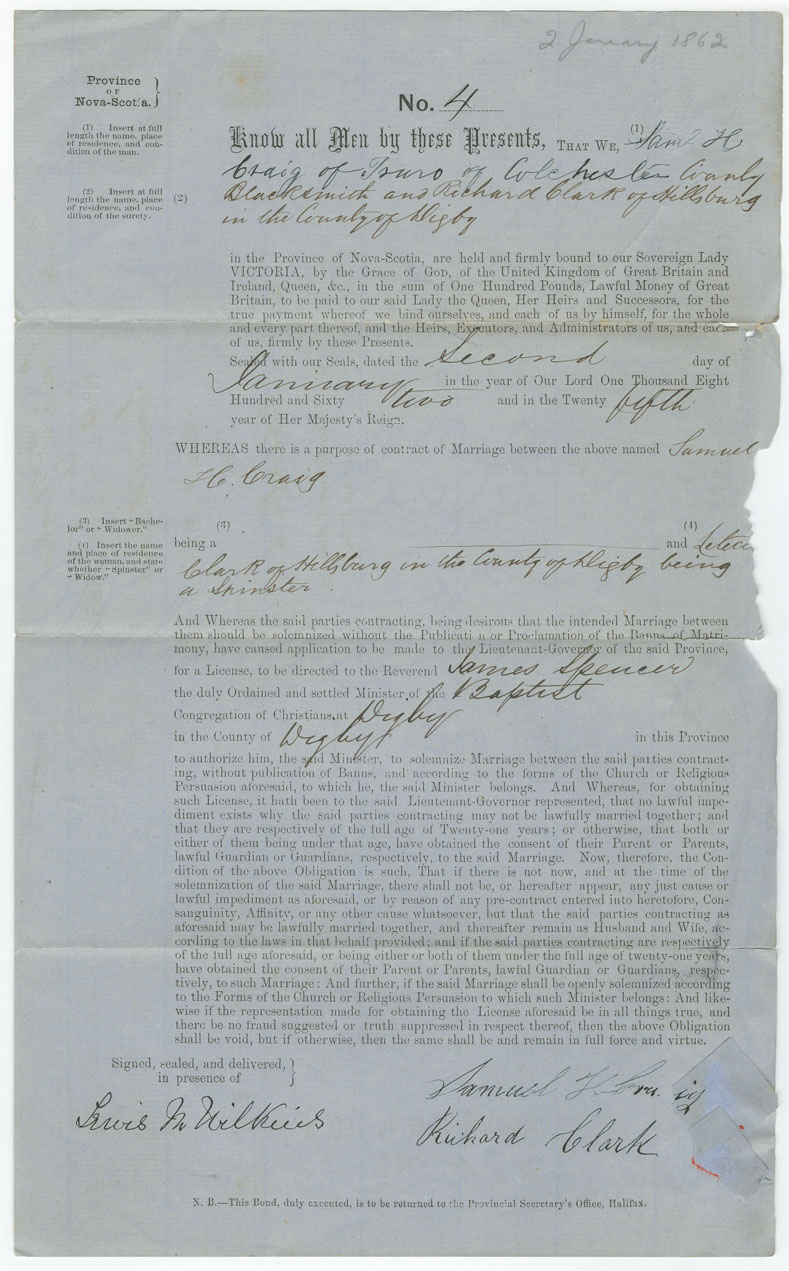 2 January 1862
Province
OF
Nova-Scotia.
(1) Insert at full
length the name, place
of residence, and con-
dition of the man.
(2) Insert at full
length the name, place
of residence, and con-
dition of the surety.
No. 4
Know all Men by these Presents, THAT WE, (1) Saml H
Craig of Truro of Colchester County
(2) Blacksmith and Richard Clark of Hillsburg
in the County of Digby
in the Province of Nova-Scotia, are held and firmly bound to our Sovereign Lady
VICTORIA, by the Grace of GOD, of the United Kingdom of Great Britain and
Ireland, Queen, &c., in the sum of One Hundred Pounds, Lawful Money of Great
Britain, to be paid to our said Lady the Queen, Her Heirs and Successors, for the
true payment whereof we bind ourselves, and each of us by himself, for the whole
and every part thereof, and the Heirs, Executors, and Administrators of us, and each
of us, firmly by these Presents.
Sealed with our Seals, dated the Second day of
January in the year of Our Lord One Thousand Eight
Hundred and Sixty two and in the Twenty fifth
year of Her Majesty's Reign.
WHEREAS there is a purpose of contract of Marriage between the above named Samuel
H. Craig
(3) Insert "Bache-
lor" or "Widower."
(4) Insert the name
and place of residence
of the woman, and state
whether "Spinster" or
"Widow."
(3) (4)
being a and
Clark of Hillsburg in the County of Digby being
a Spinster.
And Whereas the said parties contracting, being desirous that the intended Marriage between
them should be solemnized without the Publicati n or Proclamation of the Banns of Matri-
mony, have caused application to be made to the Lieutenant-Governor of the said Province,
for a License, to be directed to the Reverend James Spencer
the duly Ordained and settled Minister of the Baptist
Congregation of Christians, at Digby
in the County of Digby in this Province
to authorize him, the said Minister, to solemnize Marriage between the said parties contract-
ing, without publication of Banns, and according to the forms of the Church or Religious
Persuasion aforesaid, to which he, the said Minister belongs. And Whereas, for obtaining
such License, it hath been to the said Lieutenant-Governor represented, that no lawful impe-
diment exists why the said parties contracting may not be lawfully married together; and
that they are respectively of the full age of Twenty-one years; or otherwise, that both or
either of them being under that age, have obtained the consent of their Parent or Parents,
lawful Guardian or Guardians, respectively, to the said Marriage. Now, therefore, the Con-
dition of the above Obligation is such, That if there is not now, and at the time of the
solemnization of the said Marriage, there shall not be, or hereafter appear, any just cause or
lawful impediment as aforesaid, or by reason of any pre-contract entered into heretofore, Con-
sanguinity, Affinity, or any other cause whatsoever, but that the said parties contracting as
aforesaid may be lawfully married together, and thereafter remain as Husband and Wife, ac-
cording to the laws in that behalf provided; and if the said parties contracting are respectively
of the full age aforesaid, or being either or both of them under the full age of twenty-one years,
have obtained the consent of their Parent or Parents, lawful Guardian or Guardians, respec-
tively, to such Marriage: And further, if the said Marriage shall be openly solemnized according
to the Forms of the Church or Religious Persuasion to which such Minister belongs: And like-
wise if the representation made for obtaining the License aforesaid be in all things true, and
there be no fraud suggested or truth suppressed in respect thereof, then the above Obligation
shall be void, but if otherwise, then the same shall be and remain in full force and virtue.
Signed, sealed, and delivered,
in presence of
Samuel H Craig
Lewis M Wilkins
Richard Clark
N. B.—This Bond, duly executed, is to be returned to the Provincial Secretary's Office, Halifax.